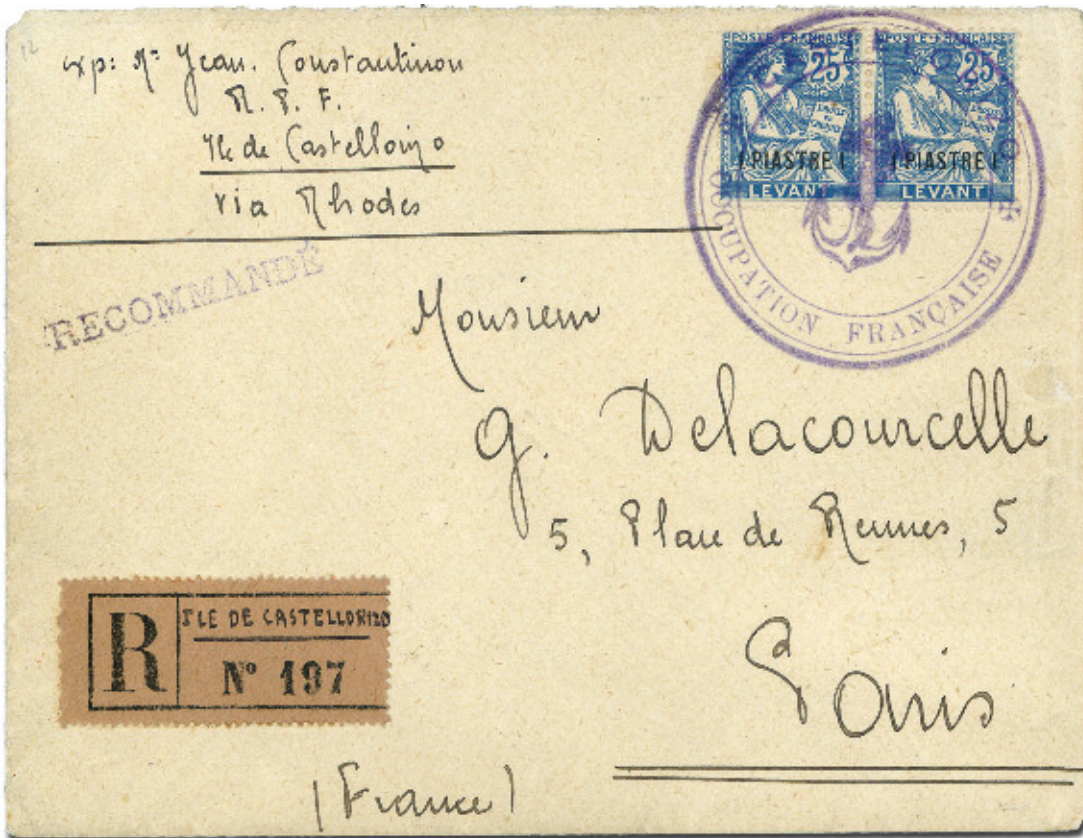 12
exp: Mr Jean. Constantinou
R. P. F.
Ile de Castelloizo
via Rhodes
POSTE FRANÇAISE
25
1 PIASTRE 1
LEVANT
POSTE FRANÇAISE
25
1 PIASTRE 1
LEVANT
OCCUPATION FRANÇAISE
RECOMMANDÉ
Monsieur
G. Delacourcelle
5, Place de Rennes, 5
Paris
(France)
R
ILE DE CASTELLORIZO
Nº 197